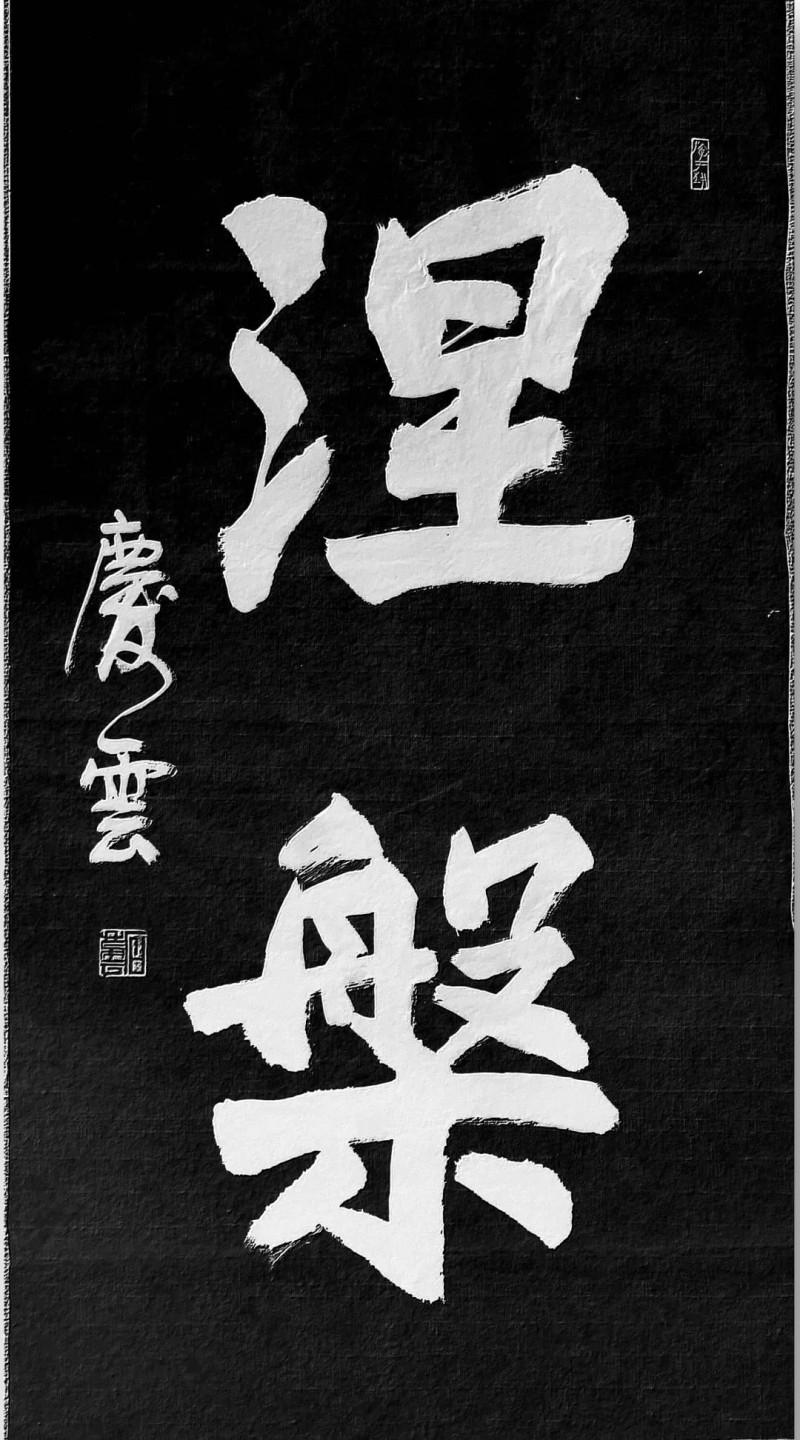 涅
槃
慶雲